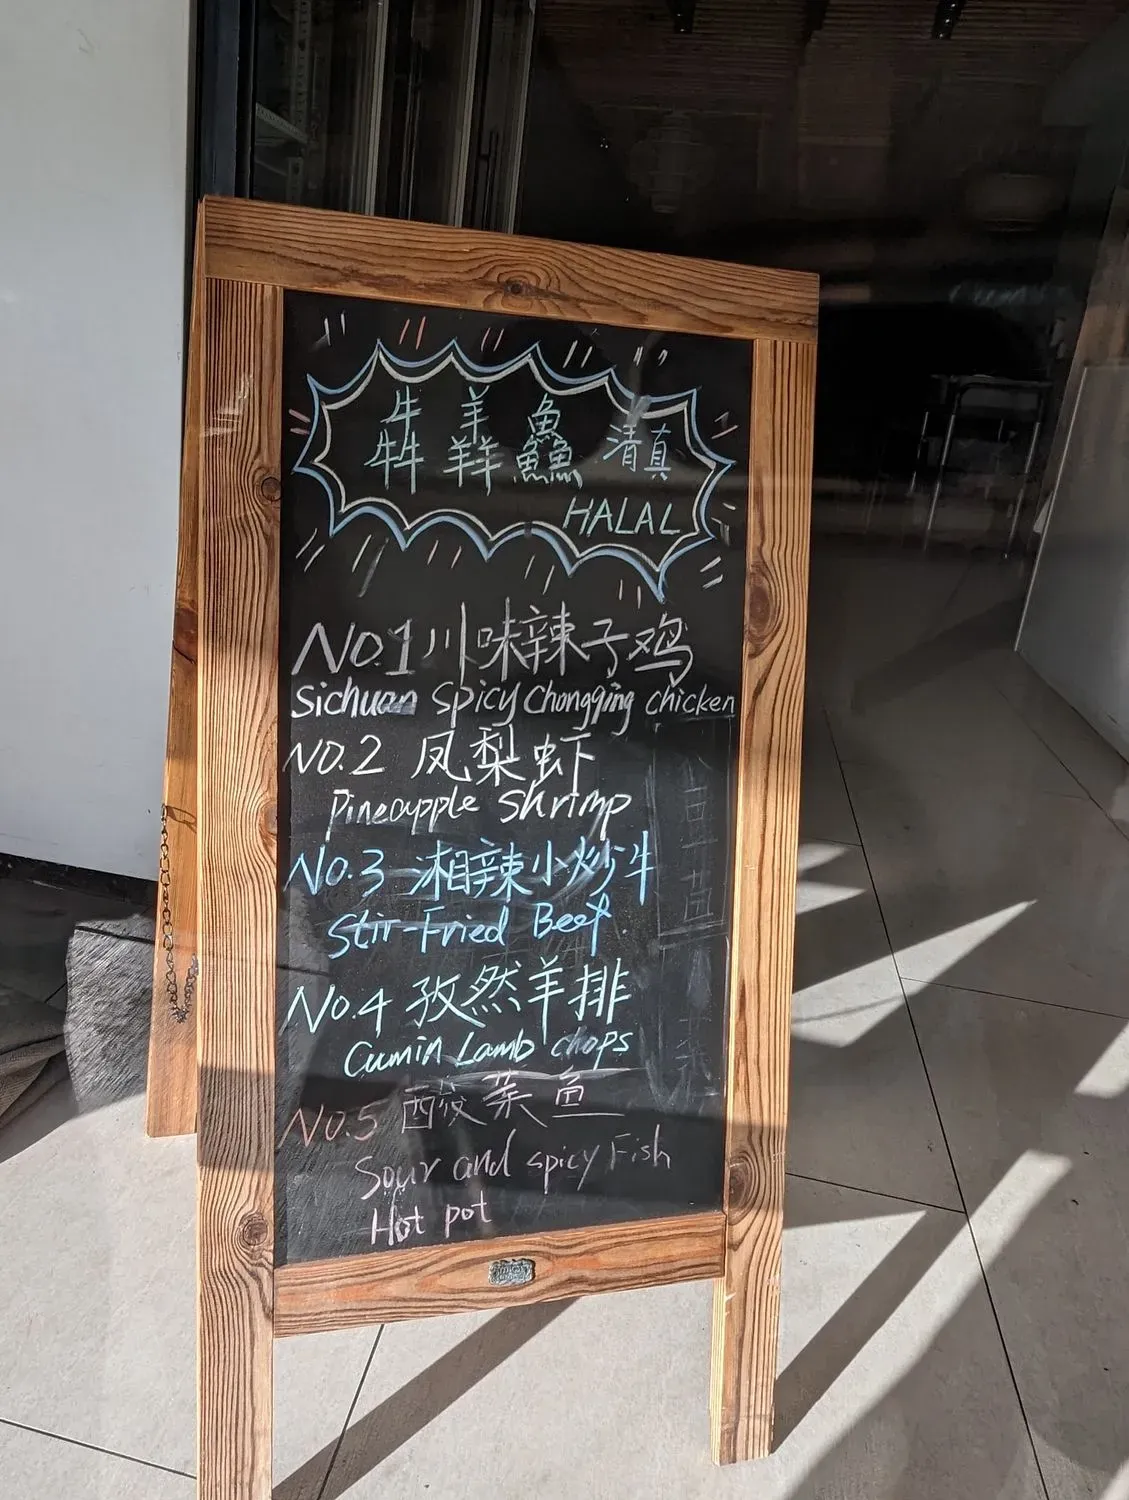 犇 羴 鱻 清真
HALAL
No.1 川味辣子鸡
Sichuan Spicy Chongqing chicken
NO.2 凤梨虾
Pineapple Shrimp
No.3 湘辣小炒牛
Stir-Fried Beef
No.4 孜然羊排
Cumin Lamb chops
No.5 酸菜鱼
Sour and spicy Fish
Hot pot